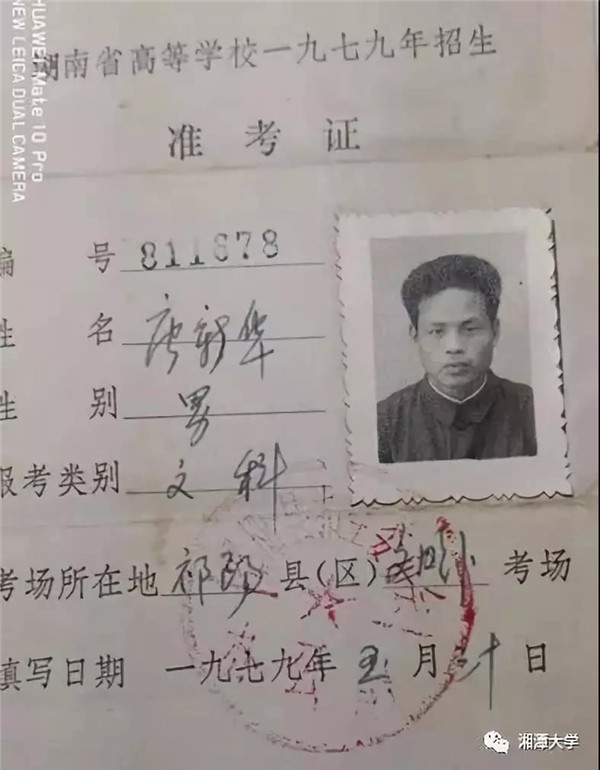 湖南省高等学校一九七九年招生
准考证
编号 811678
姓名 唐新华
性别 男
报考类别 文科
考场所在地 祁阳 县(区) 考场
填写日期 一九七九年 五 月 三十 日
HUAWEI Mate 10 Pro
NEW LEICA DUAL CAMERA
湘潭大学